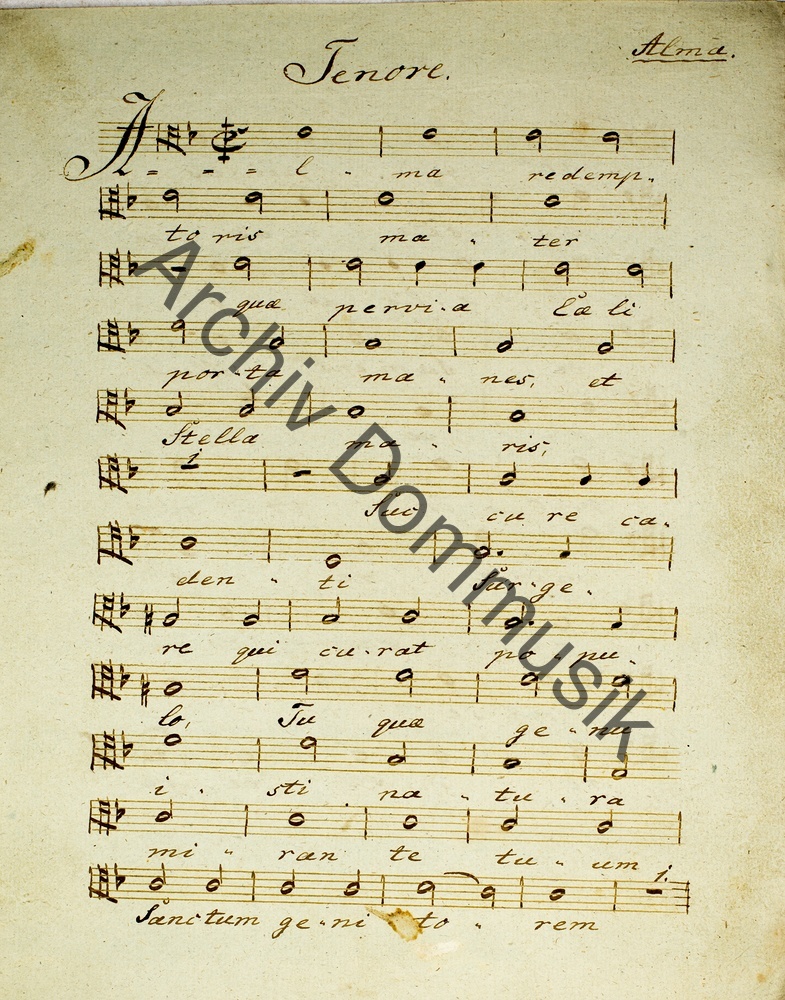 Alma.
Tenore.
A - - - l - ma redemp-
to ris ma - ter
quæ pervi-a Cæ li
por-ta ma - nes, et
Stella ma - ris,
1
Suc cu re ca-
den - ti Sur-ge-
re qui cu-rat po-pu-
lo, Tu quæ ge-nu
i - sti na - tu - ra
mi - ran te tu - um
1.
Sanctum ge-ni to - rem
Archiv Dommusik